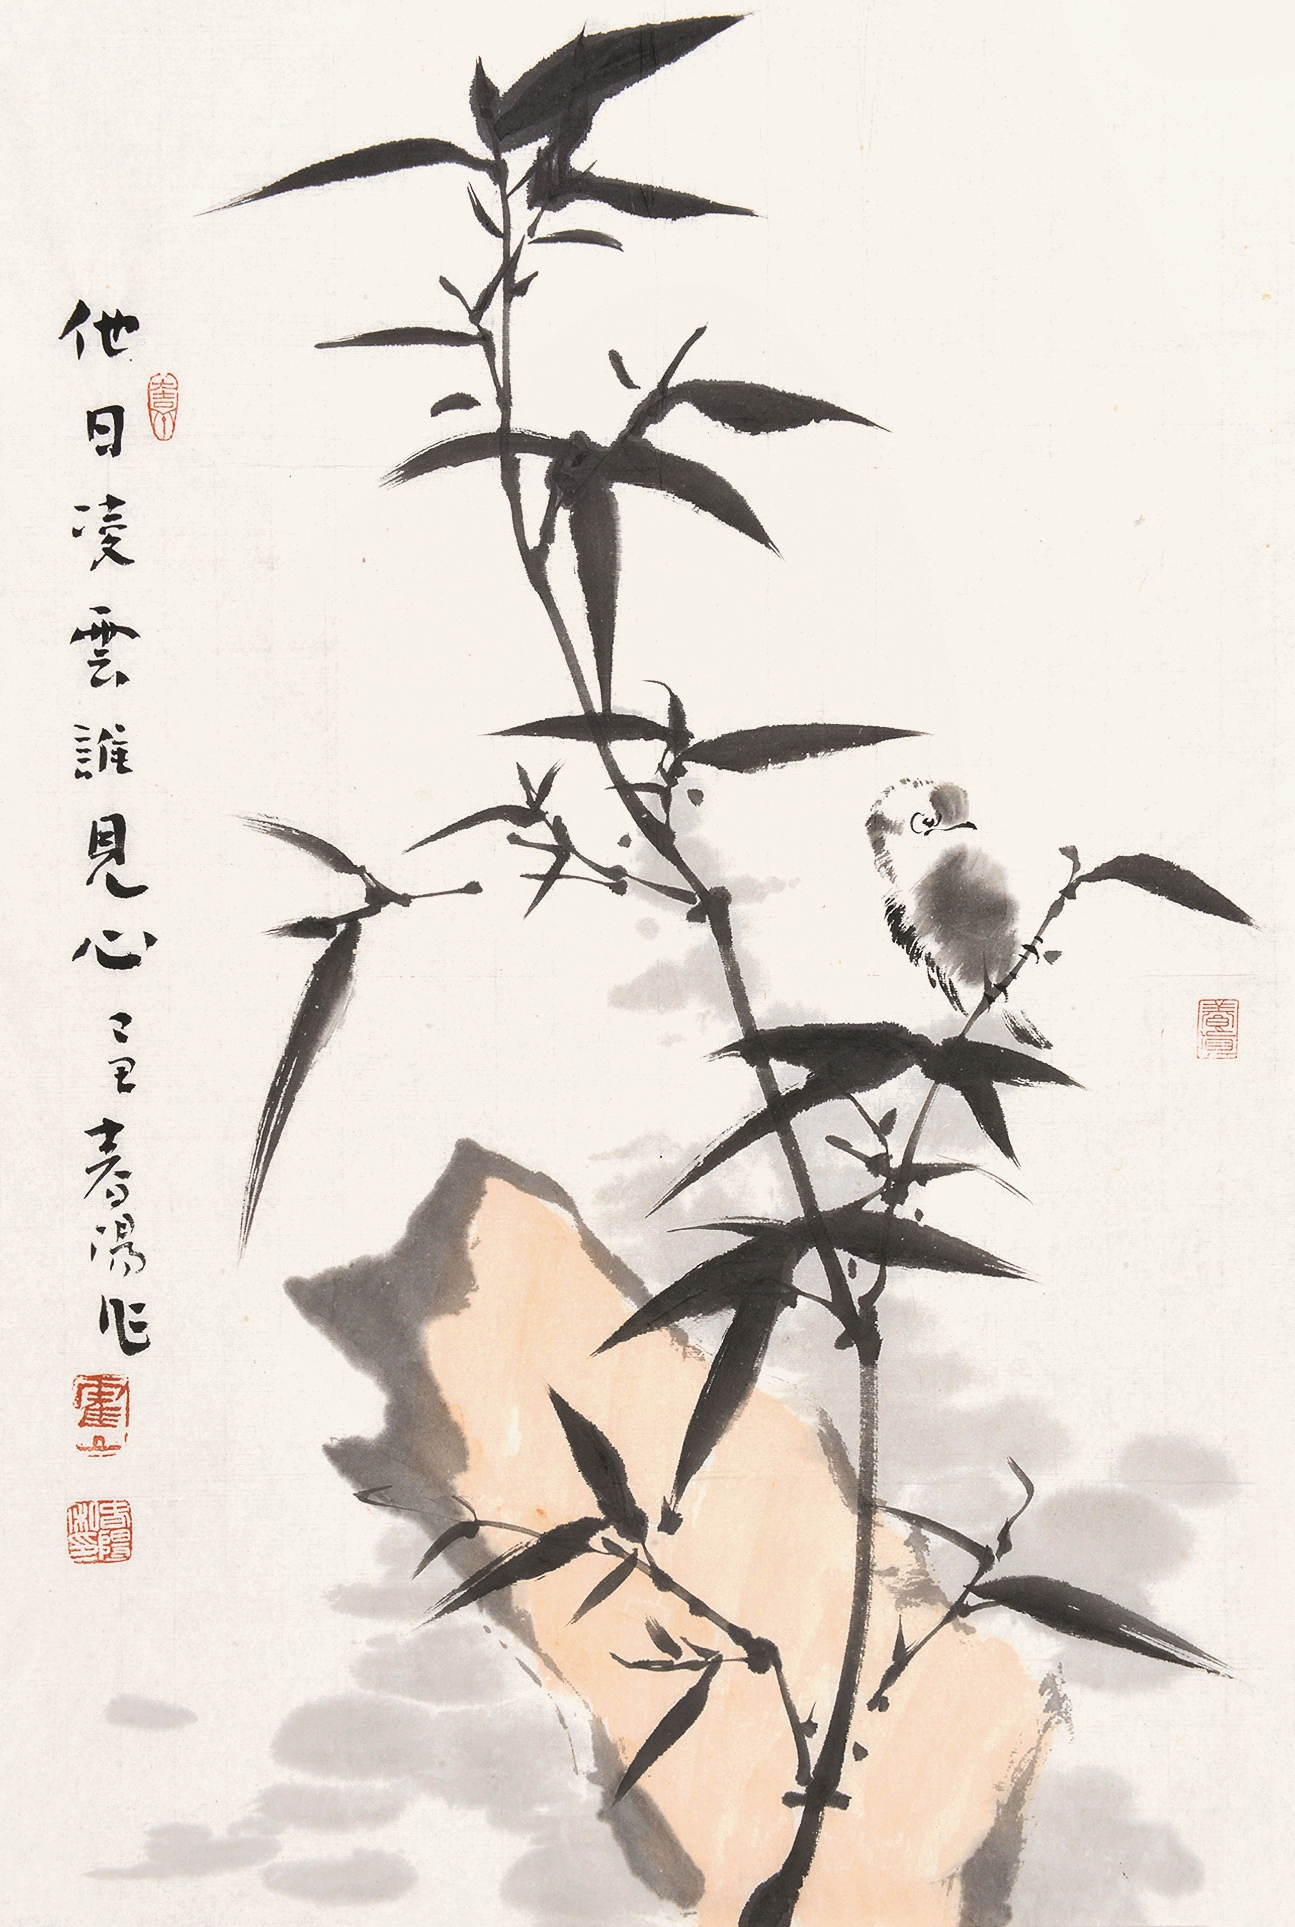 他日凌雲誰見心 己丑 春陽作